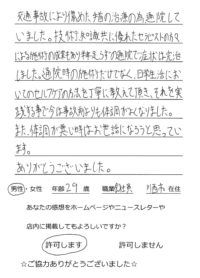 交通事故により傷めた首の治療の為通院して
いました。技術、知識共に優れたセラピストの方々
による施術の成果もあり半年足らずの通院で症状は完治
しました。通院時の施術だけでなく、日常生活にお
いてのセルフケアの方法も丁寧に教えて頂き、それを実
践する事で今は事故前よりも体調がよくなりました。
また体調が悪い時はお世話になろうと思ってい
ます。
ありがとうございました。
男性・女性 年齢 29 歳 職業 会社員 川崎市 在住
あなたの感想をホームページやニュースレターや
店内に掲載してもよろしいですか?
許可します 許可しません
☆ご協力ありがとうございました☆